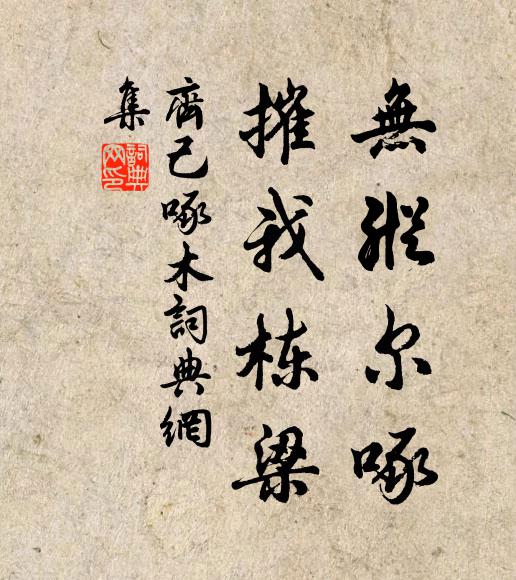 無縱尔啄
摧我栋梁
齊己啄木詞典網
集
詞典
网印